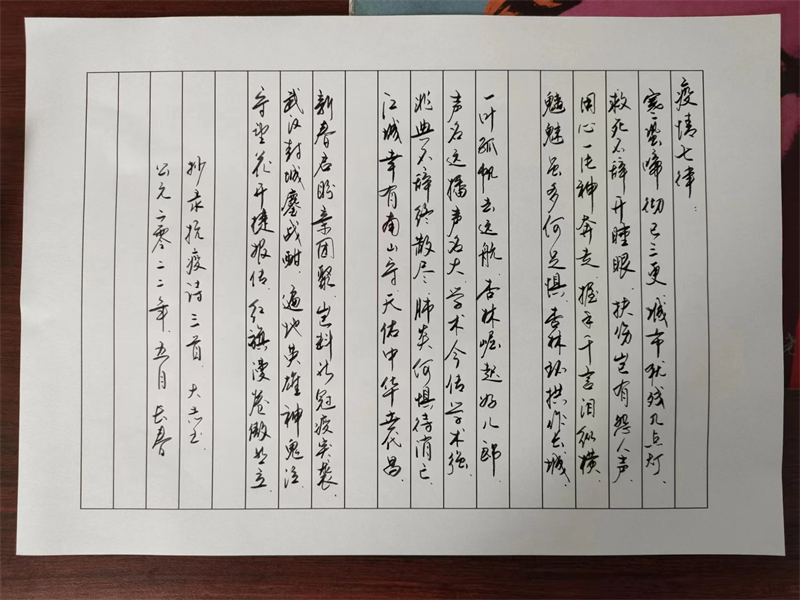 疫情七律:
寒蛩啼彻已三更.城市犹残几点灯.
救死不辞开睡眼.扶伤岂有怨人声.
用心一片神奔走.握手千言泪纵横.
魑魅虽多何足惧.杏林环拱作长城.
一叶孤帆去远航.杏林崛起好儿郎.
声名远播声名大.学术今传学术强.
非典不辞终散尽.肺炎何惧待消亡.
江城幸有南山守.天佑中华世代昌.
新春启盼亲团聚.岂料新冠疫突袭.
武汉封城鏖战酣.遍地英雄神鬼泣.
守望花开捷报传.红旗漫卷傲然立.
抄录抗疫诗三首.大志书
公元二零二二年.五月长春